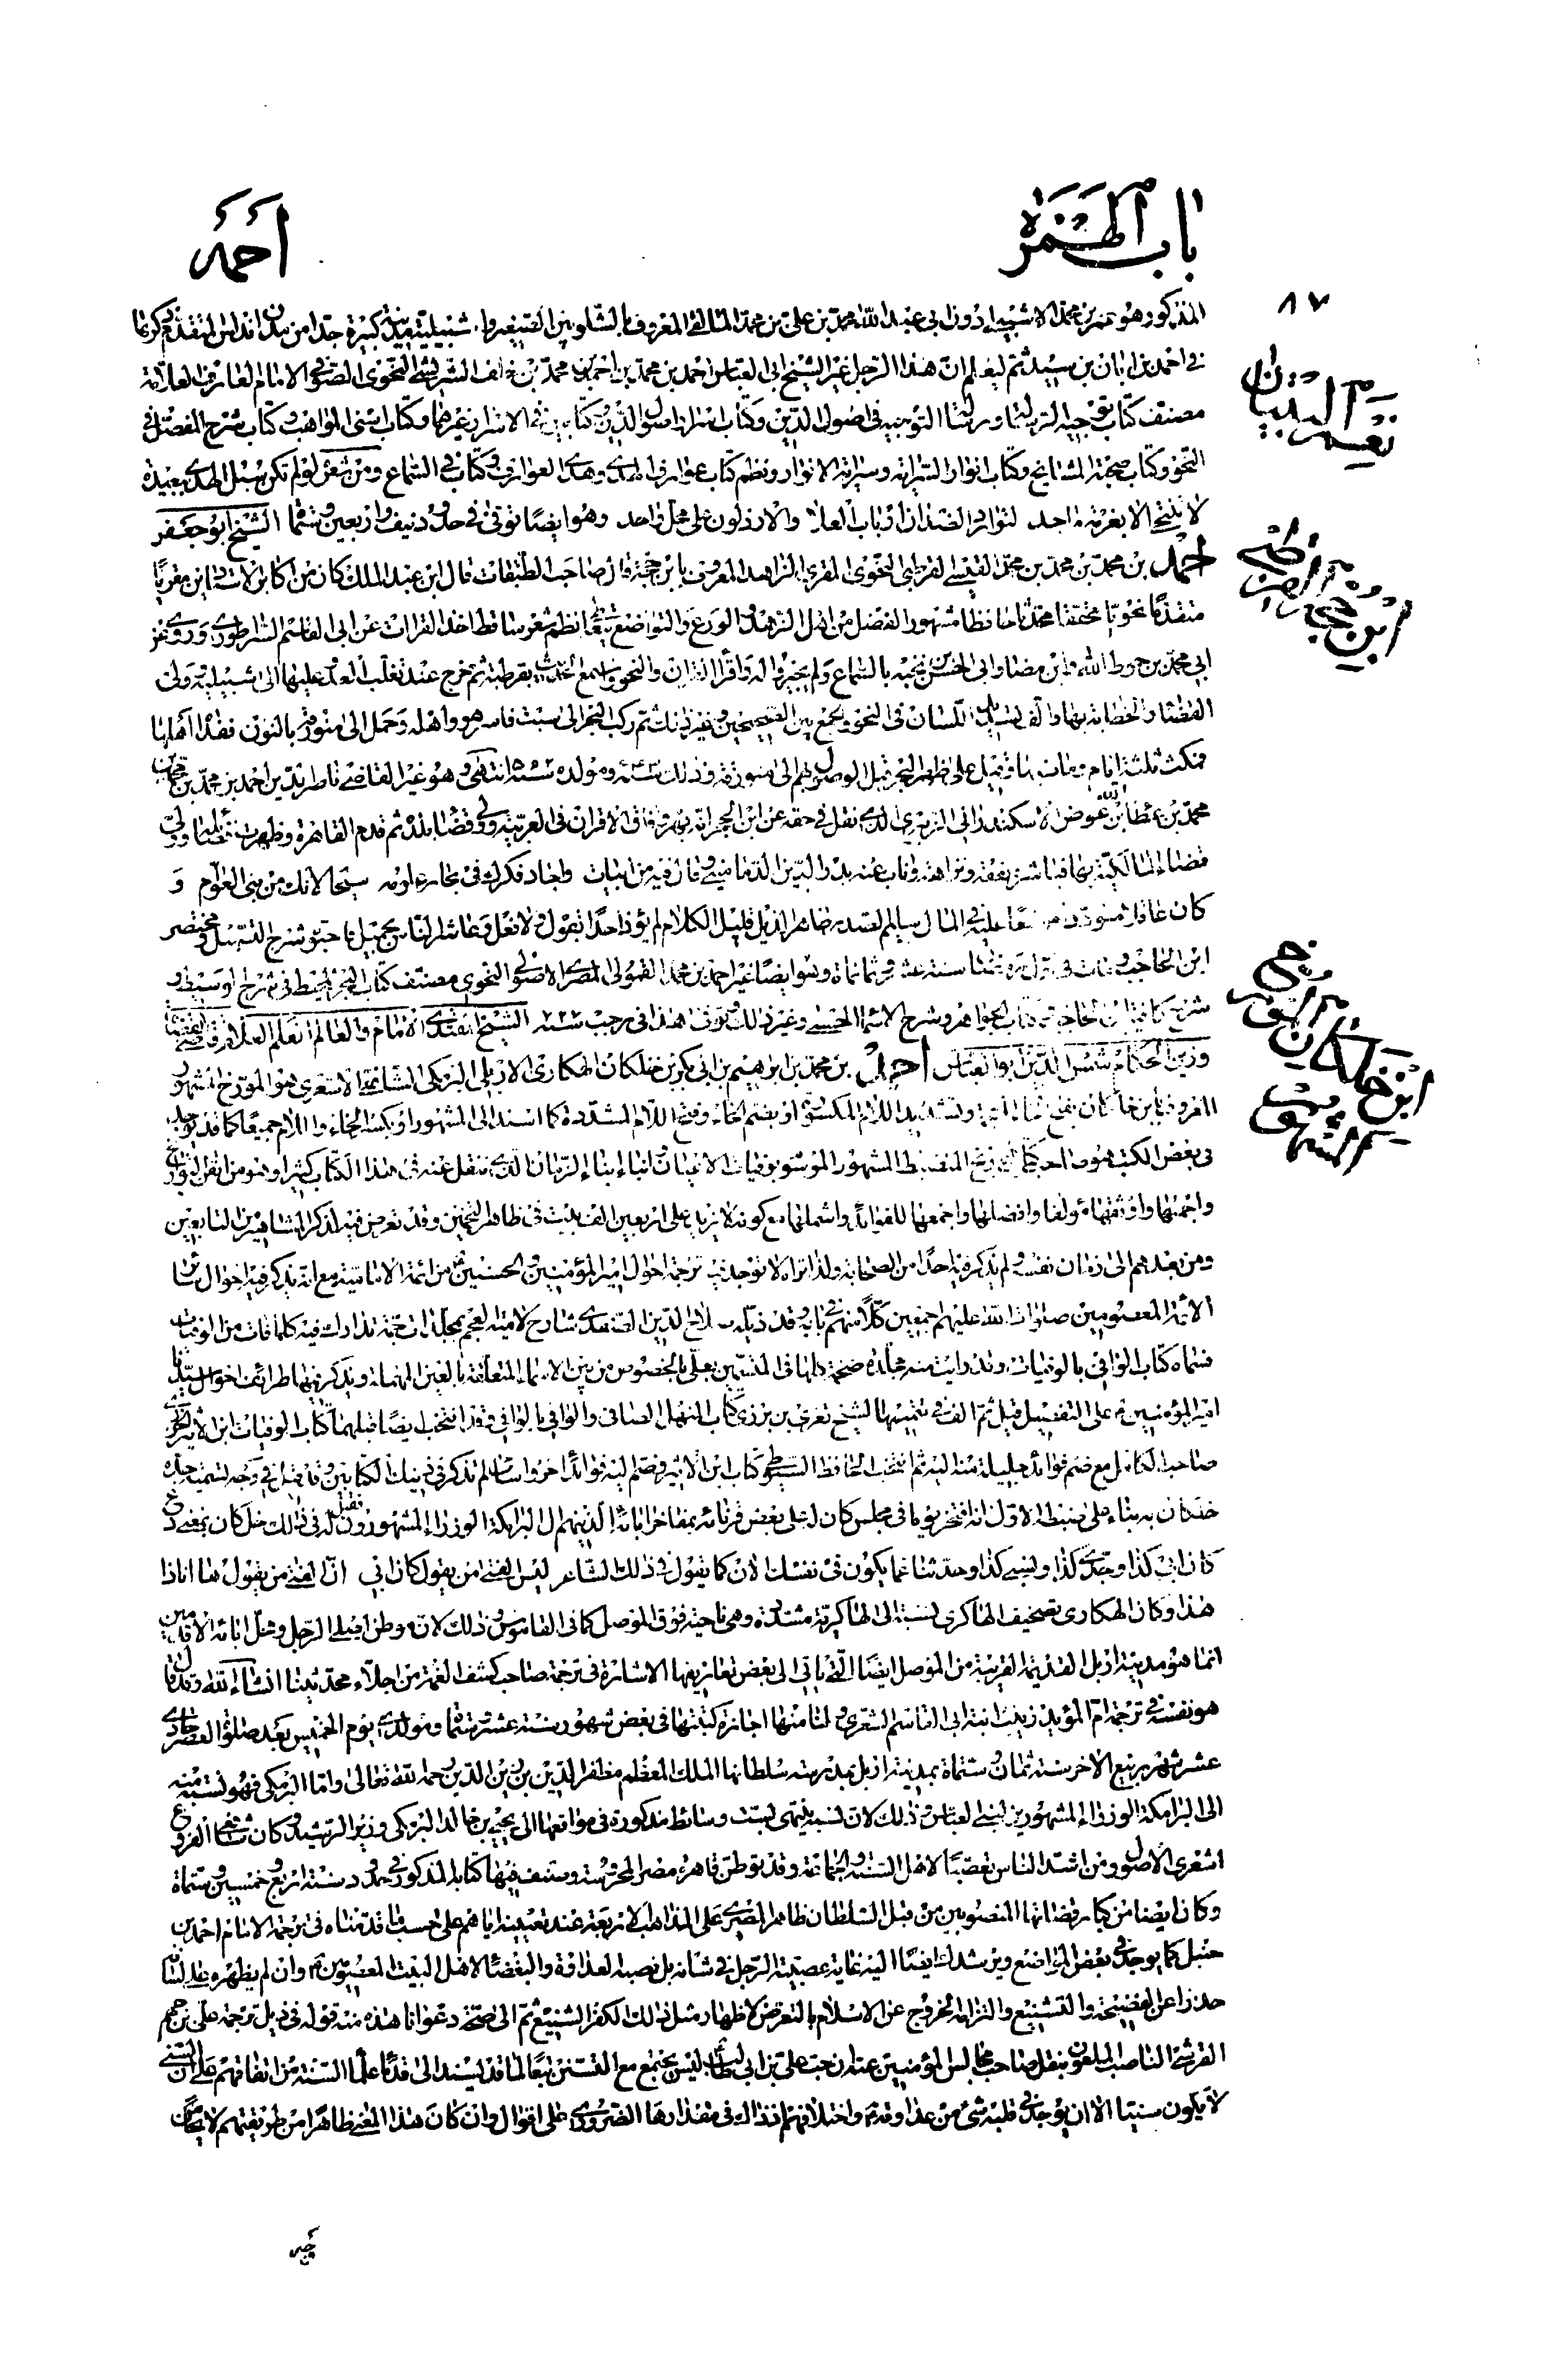 باب الهمزة
احمد
٨٧
المذكور هو عمر بن محمد الاشبيلى دون ابى عبد الله محمد بن على بن محمد المالقى المعروف بالشلوبين الصغير و اشبيلية مدينة كبيرة جدا من بلدان اندلس المتقدم ذكرها
فى احمد بن ابان بن سيد ثم ليعلم ان هذا الرجل غير الشيخ ابى العباس احمد بن محمد بن احمد بن محمد بن خلف الشريشى النحوى الصوفى الامام العارف العلامة
مصنف كتاب توجيه الرسالة و رسالة التوجيه فى اصول الدين وكتاب اسرار اصول الدين كتاب الاسرار وغيرها وكتاب اسنى المواهب وكتاب شرح المفصل فى
النحو وكتاب صحبة المشايخ وكتاب انوار السراية وسراية الانوار ونظم كتاب عوارف الهدى وهدى العوارف وكتاب فى السماع ومن شعره لو لم تكن سبل الهدى بعيدة
لا تنتحى الا بغرمة ماجد لتوارد الضدان ارباب العلا والارذلون على محل واحد وهو ايضا توفى فى حدود نيف واربعين وستمأة الشيخ ابو جعفر
احمد بن محمد بن محمد بن محمد القيسى القرطبى النحوى المقرى الزاهد المعروف بابن حجة قال صاحب الطبقات قال ابن عبد الملك كان من اكابر الاستاذين مقريا
متقدما نحويا محققا محدثا حافظا مشهور الفضل من اهل الزهد والورع والتواضع نظم شعر ساقط اخذ القرات عن ابى القاسم الشراط وروى عن
ابى محمد بن حوط الله وابن مضا وابى الحسن نجبة بالسماع ولم يجيزوا له واقرا القران والنحو واسمع الحديث بقرطبة ثم خرج عند تغلب العدو عليها الى اشبيلية وولى
القضا والخطابة بها والف تسديد اللسان فى النحو والجمع بين الصحيحين وغير ذلك ثم ركب البحر الى سبتة فاسر هو واهله وحمل الى منورقة بالنون ففداه اهلها
فمكث ثلثة ايام ومات بها وقيل على ظهر البحر قبل الوصول بهم الى منورقة وذلك سنة ٦٤٣ ومولده سنة ٥٦٢ انتهى وهو غير القاضى ناصر الدين احمد بن محمد بن
محمد بن عطاء الله بن عوض الاسكندرانى الزبيرى الذى نقل فى حقه عن ابن حجر انه مهر وفاق الاقران فى العربية وولى قضا بلده ثم قدم القاهرة وظهرت فضائله وولى
قضاء المالكية بها فباشر بعفة ونزاهة وناب عنه بدر الدين الدمامينى وقال فيه من ابيات واجاد فكرك فى بحار علومه سبحا لانك من بنى العوام و
كان عاقلا متوددا موسعا عليه فى المال سليم الصدر طاهر الذيل قليل الكلام لم يؤذ احدا بقول ولا فعل وعاشر الناس بجميل فاحبوه شرح التسهيل ومختصر
ابن الحاجب ومات فى اول رمضان سنة عشر وثمانمأة وهو ايضا غير احمد بن محمد القمولى المصرى الاصولى النحوى مصنف كتاب البحر المحيط فى شرح الوسيط و
شرح كافية ابن الحاجب وكتاب الجواهر وشرح الاسماء الحسنى وغير ذلك وتوفى هذا فى رجب سنة ٧٢٧ الشيخ المقتدى الامام والعالم المعلم العلام قاضى القضاة
وزين الحكام شمس الدين ابو العباس احمد بن محمد بن ابراهيم بن ابى بكر بن خلكان الهكارى الاربلى البرمكى الشافعى الاشعرى هو المورخ المشهور
المعروف بابن خلكان بفتح الخاء المعجمة وتشديد اللام المكسورة او بضم الخاء وفتح اللام المشددة كما اسند الى المشهور او بكسر الخاء واللام جميعا كما قد يوجد
فى بعض الكتب هو صاحب كتاب التاريخ المنضبط المشهور الموسوم بوفيات الاعيان فى انباء ابناء الزمان الذى ننقل عنه فى هذا الكتاب كثيرا وهو من اتقن التواريخ
واجمعها واوثقها مؤلفا وافضلها واجمعها للفوايد واشملها مع كونه لا يزيد على اربعين الف بيت فى ظاهر التخمين وقد تعرض فيه لذكر المشاهير من التابعين
ومن بعدهم الى زمان نفسه ولم يذكر فيه احدا من الصحابة ولذا تراه لا توجد فيه ترجمة احوال امير المؤمنين والحسنين من ائمة الامامية مع انه يذكر فيه احوال سائر
الائمة المعصومين صلوات الله عليهم اجمعين كلا منهم فى بابه وقد ذيله صلاح الدين الصفدى شارح لامية العجم بمجلدات ضخمة تدارك فيه كلما فات من الوفيات
سماه كتاب الوافى بالوفيات وقد رايت منه مجلدة ضخمة كلها فى المتسمين بعلى بالخصوص من بين الاسماء المتعلقة بالعين المهملة ويذكر فيها طرائف احوال سيدنا
امير المؤمنين على التفصيل قيل ثم الف فى تتميمها الشيخ تغرى بن بردى كتاب المنهل الصافى والوافى بالوافى وقد انتخب ايضا قبلهما كتاب الوفيات ابن الاثير الجزرى
صاحب الكامل مع ضم فوائد جليلة منه اليه ثم انتخب الحافظ السيوطى كتاب ابن الاثير وضم اليه فوائد اخر واشيا لم تذكر فى ذينك الكتابين وقد قيل فى وجه تسمية جده
خلكان به بناء على ضبطه الاول انه افتخر يوما فى مجلس كان له على بعض قرنائه بمفاخر ابائه الذين هم ال البرامكة الوزراء المشهورون فقيل له فى ذلك خل كان بمعنى دع
كان ابى كذا وجدى كذا ونسبى كذا وحدثنا عما يكون فى نفسك الان كما يقول فى ذلك الشاعر ليس الفتى من يقول كان ابى ان الفتى من يقول ها انا ذا
هذا وكان الهكارى تصحيف الهاكرى نسبة الى الهاكرية مشددة وهى ناحية فوق الموصل كما فى القاموس وذلك لان موطن اصلى الرجل ومنزل ابائه الاقدمين
انما هو مدينة اربل القديمة القريبة من الموصل ايضا التى ياتى الى بعض تعاريفها الاشارة فى ترجمة صاحب كشف الغمة من اجلاء محدثينا انشاء الله وقد قال
هو نفسه فى ترجمة ام المؤيد زينب ابنة ابى القاسم الشعرى ولنا منها اجازة كتبتها فى بعض شهور سنة عشر وستمأة ومولدى يوم الخميس بعد صلوة العصر حادى
عشر شهر ربيع الاخر سنة ثمان وستمأة بمدينة اربل بمدرسة سلطانها الملك المعظم مظفر الدين بن زين الدين رحمه الله تعالى واما البرمكى فهو نسبة منه
الى البرامكة الوزراء المشهورين لبنى العباس وذلك لان نسبه ينتهى بست وسائط مذكورة فى مواقعها الى يحيى بن خالد البرمكى وزير الرشيد وكان شافعى الفروع
اشعرى الاصول ومن اشد الناس تعصبا لاهل السنة والجماعة وقد توطن قاهرة مصر المحروسة وصنف فيها كتابه المذكور فى حدود سنة اربع وخمسين وستمأة
وكان ايضا من كبار قضاتها المنصوبين من قبل السلطان ظاهر المصرى على المذاهب الاربعة عند تعيينه اياهم على حسب ما قدمناه فى ترجمة الامام احمد بن
حنبل كما يوجد فى بعض المواضع ويرشدك ايضا اليه غاية عصبية الرجل فى شانه بل نصبه العداوة والبغضاء لاهل البيت المعصومين وان لم يظهره على لسانه
حذرا عن الفضيحة والتشنيع والتزامه الخروج عن الاسلام بالتعرض لاظهار مثل ذلك الكفر الشنيع ثم الى صحة دعوانا هذه منه قوله فى ذيل ترجمة على بن جهم
القرشى الناصب الملعون بنقل صاحب مجالس المؤمنين عنه ان حب على بن ابى طالب ليس يجتمع مع التسنن تبعا لما قد يسند الى قدماء علماء السنة من اتفاقهم على ان السنى
لا يكون سنيا الا ان يوجد فى قلبه شئ من عداوته واختلافهم اذ ذاك فى مقدارها الضرورى على اقوال وان كان هذا المعنى ظاهرا من طريقتهم لا يحتاج
ابن حجة القرطبى
ابن خلكان المورخ المشهور